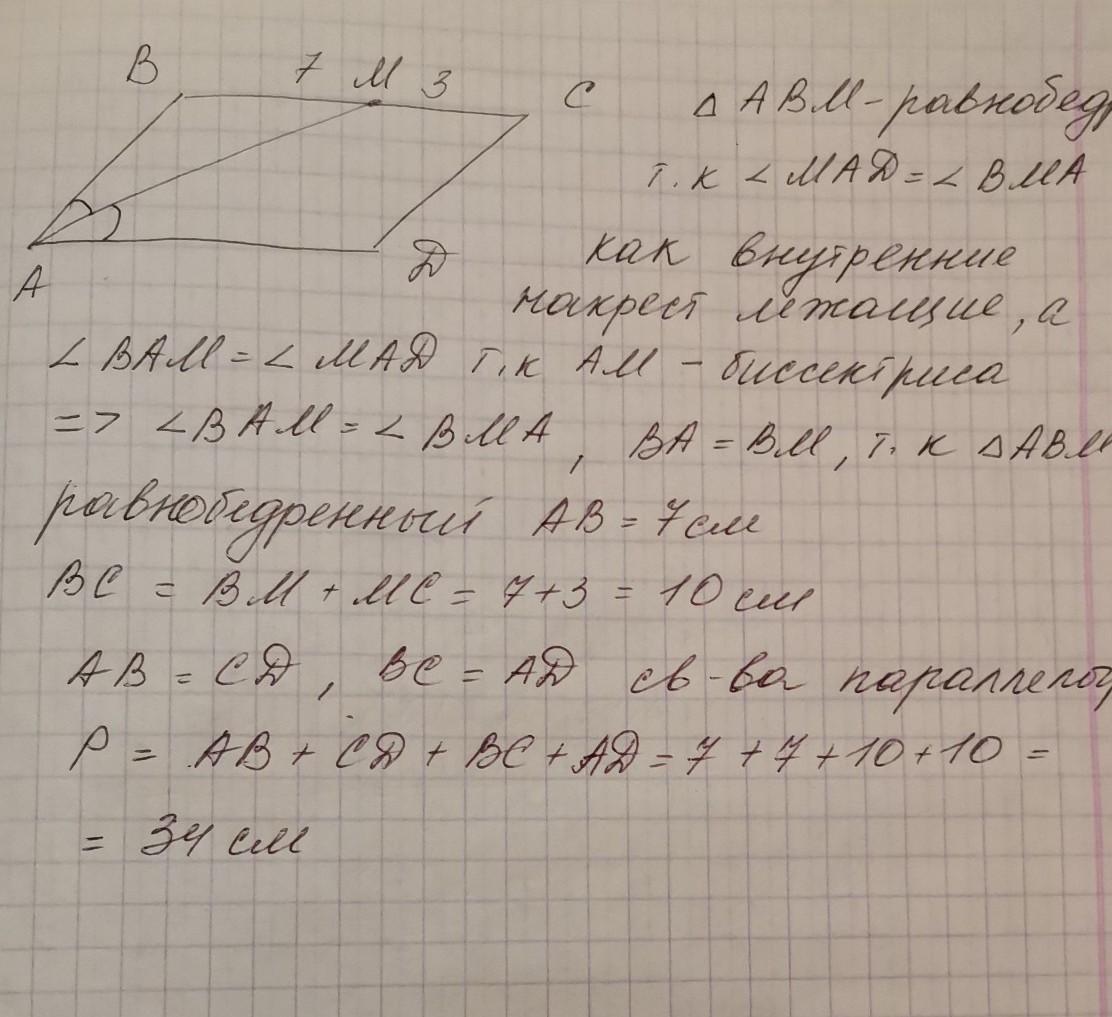 B 7 M 3 C
△ ABM - равнобедр
т.к ∠ MAD = ∠ BMA
как внутренние
A D
накрест лежащие, а
∠ BAM = ∠ MAD т.к AM - биссектриса
=> ∠BAM = ∠ BMA, BA = BM, т.к △ABM
равнобедренный AB = 7 см
BC = BM + MC = 7+3 = 10 см
AB = CD, BC = AD св-ва параллелог
P = AB + CD + BC + AD = 7 + 7 + 10 + 10 =
= 34 см